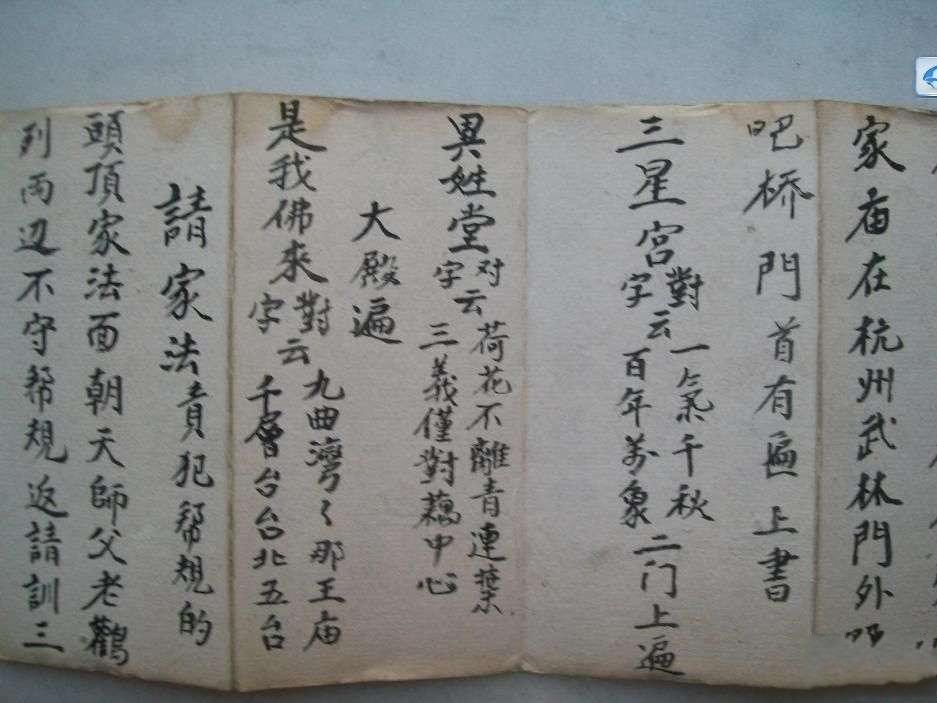 家庙在杭州武林門外
吧桥門首有匾上書
三星宮對字云一氣千秋
百年萬象二门上遍
異姓堂对字云荷花不離青連葉
三義僅對藕中心
大殿遍
是我佛來對字云九曲灣々那王庙
千層台台北五台
請家法責犯帮規的
頭頂家法面朝天師父老鸛
列两辺不守帮規返請訓三